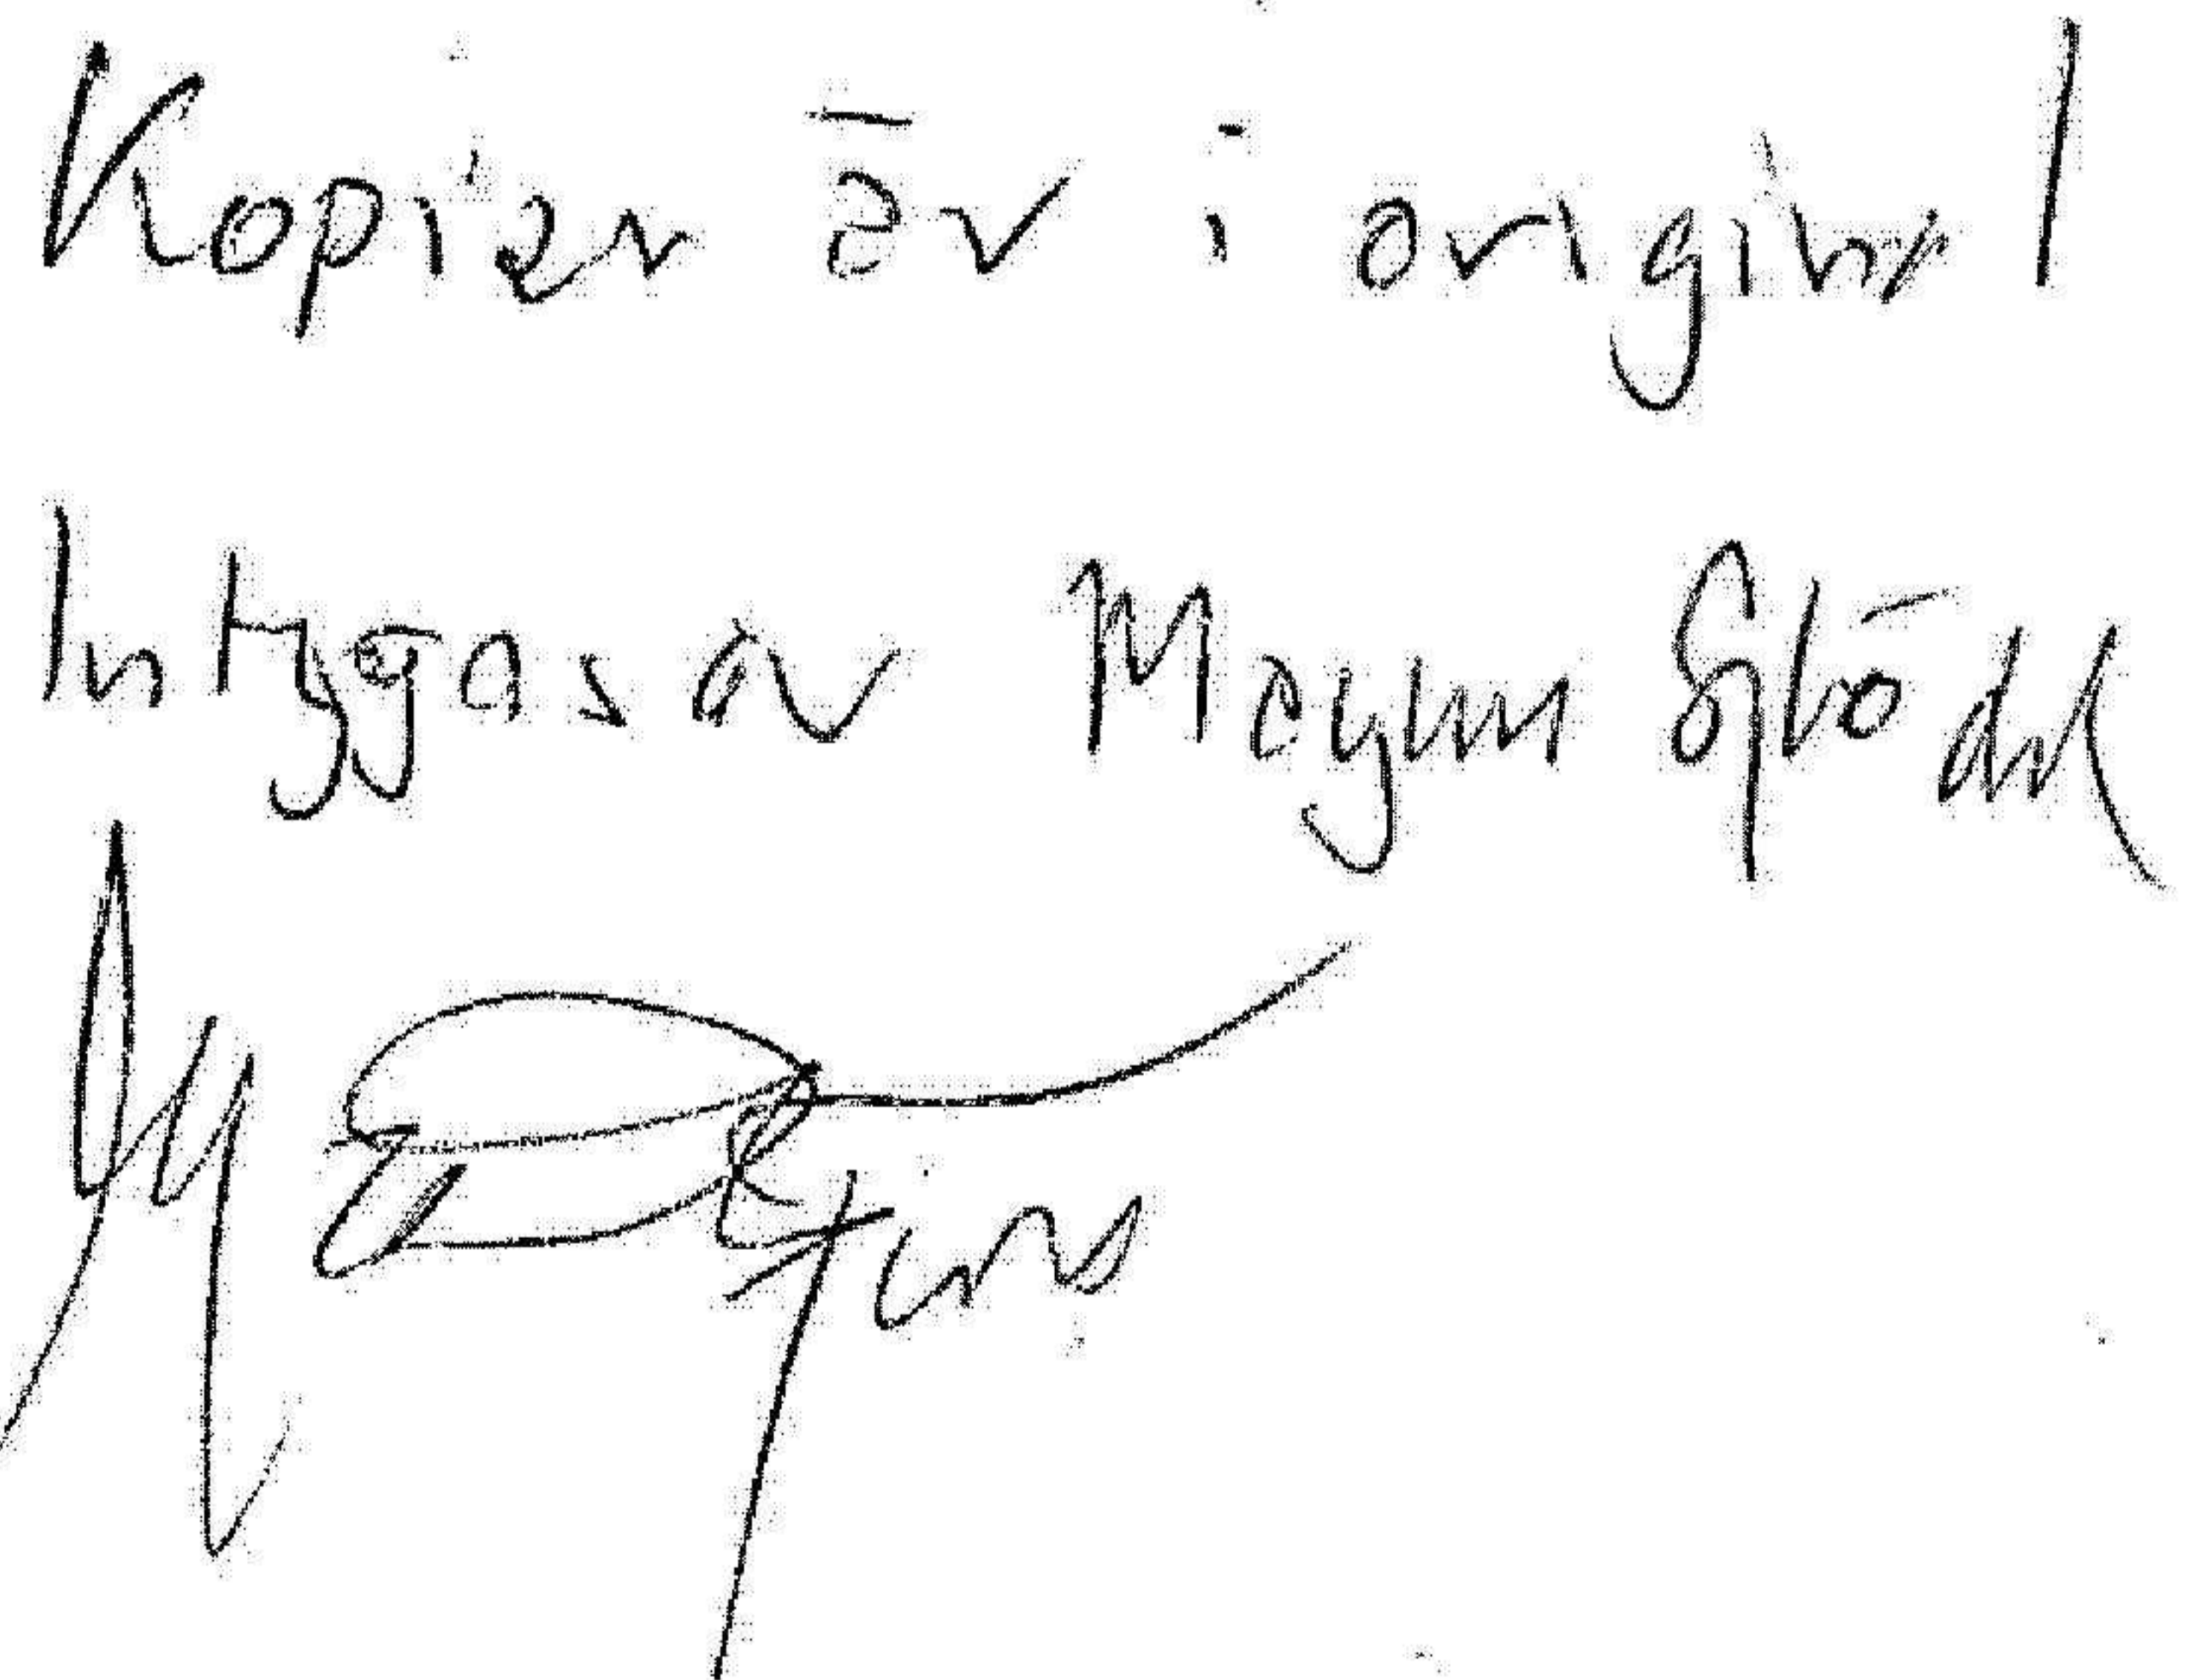 Kopian är i original
Intygas av Magnus